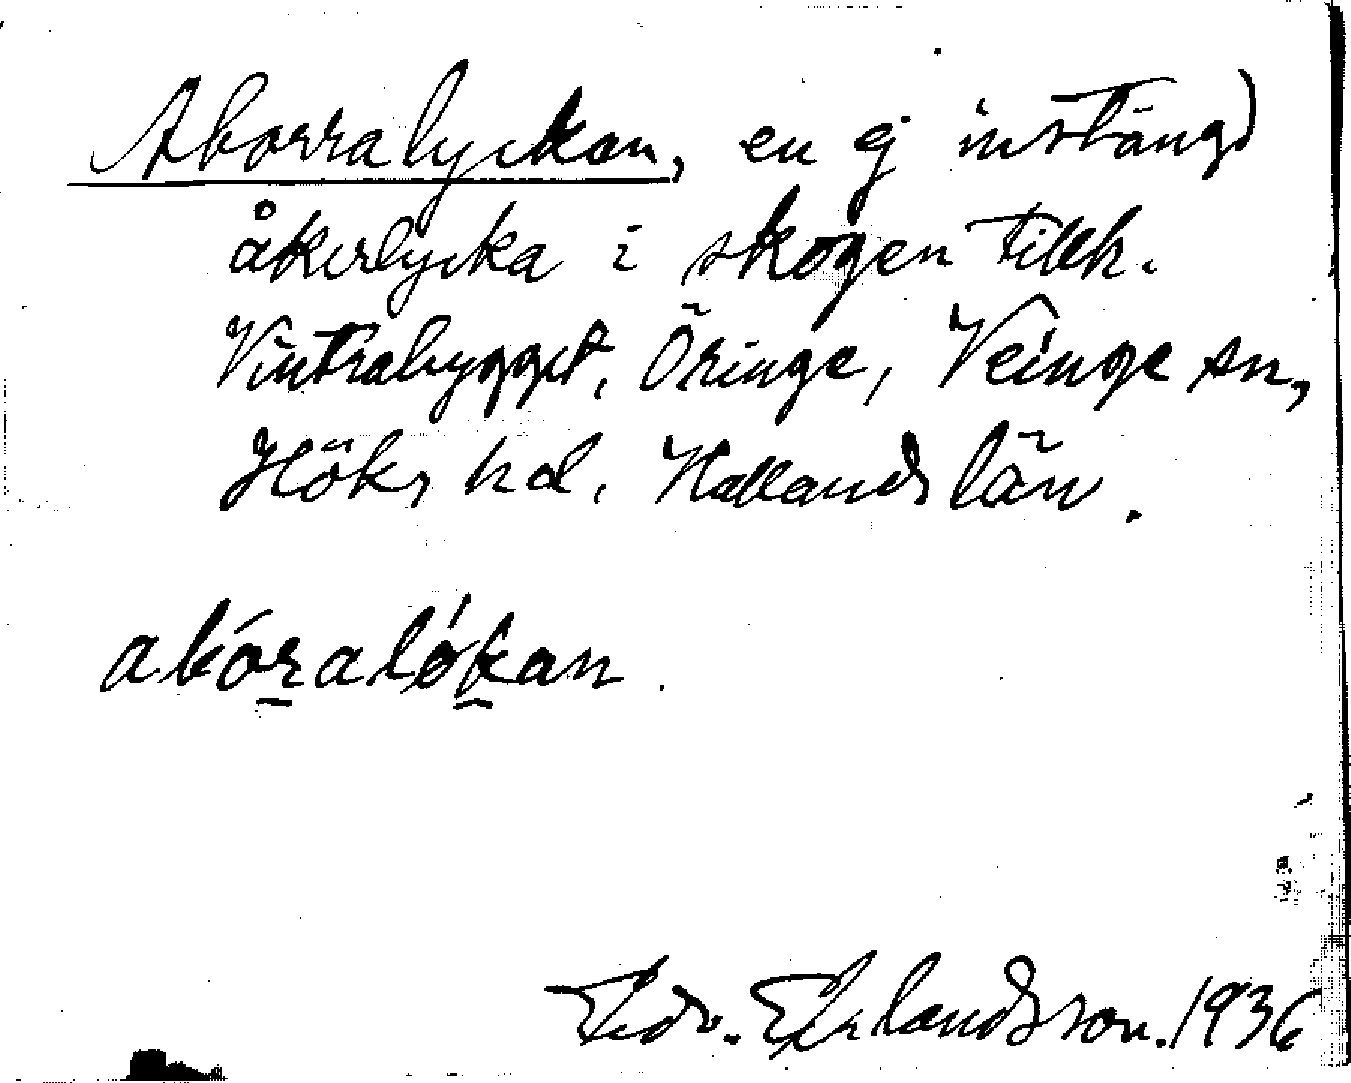 Aborralyckan, en ej instängd
åkerlycka i skogen tillh.
Vintrabygget, Öringe, Veinge sn,
Höks hd. Hallands län.
abóralókan.
Edv. Erlandsson. 1936